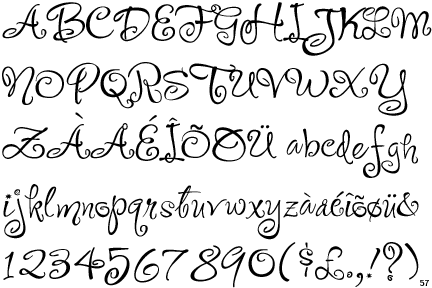 ABCDEFGHIJKLM
NOPQRSTUVWXY
ZÀÅÉÎÕØÜ abcdefgh
ijklmnopqrstuvwxyzàåéîõøü&
1234567890($£.,!?)
57